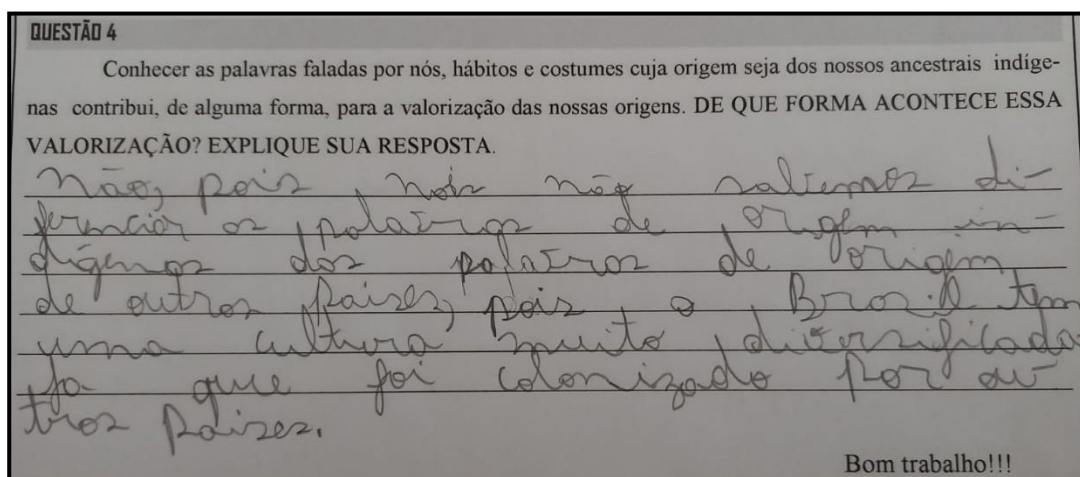 QUESTÃO 4
Conhecer as palavras faladas por nós, hábitos e costumes cuja origem seja dos nossos ancestrais indíge-
nas contribui, de alguma forma, para a valorização das nossas origens. DE QUE FORMA ACONTECE ESSA
VALORIZAÇÃO? EXPLIQUE SUA RESPOSTA.
não, pois nois não sabemos di-
ferenciar as palavras de origem in-
dígenas das palavras de origem
de outros países, pois o Brasil tem
uma cultura muito diversificada
ja que foi colonizado por ou
tros países.
Bom trabalho!!!